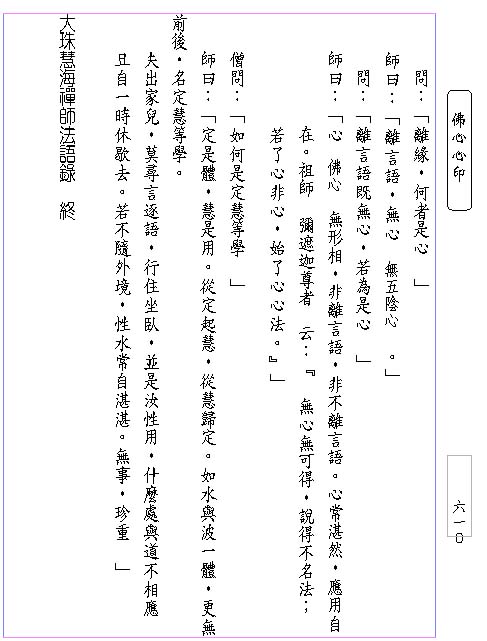 佛心心印
問：「離緣，何者是心　」
師曰：「離言語，無心　無五陰心　。」
問：「離言語既無心，若為是心　」
師曰：「心　佛心　無形相，非離言語，非不離言語。心常湛然，應用自
在。祖師　彌遮迦尊者　云：『　無心無可得，說得不名法；
若了心非心，始了心心法。』」
僧問：「如何是定慧等學　」
師曰：「定是體，慧是用。從定起慧，從慧歸定。如水與波一體，更無
前後，名定慧等學。
夫出家兒，莫尋言逐語，行住坐臥，並是汝性用，什麼處與道不相應
且自一時休歇去。若不隨外境，性水常自湛湛。無事，珍重　」
大珠慧海禪師法語錄　終
六一０